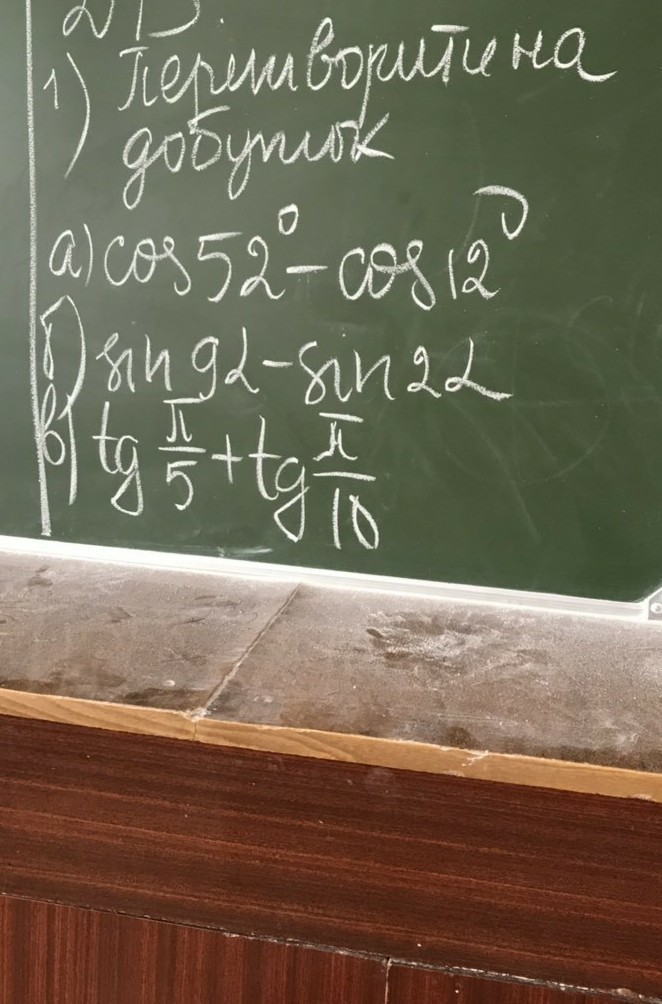 Д/З.
1) Перетворити на
добуток
а) cos 52° – cos 12°
б) sin 9α – sin 2α
в) tg π/5 + tg π/10